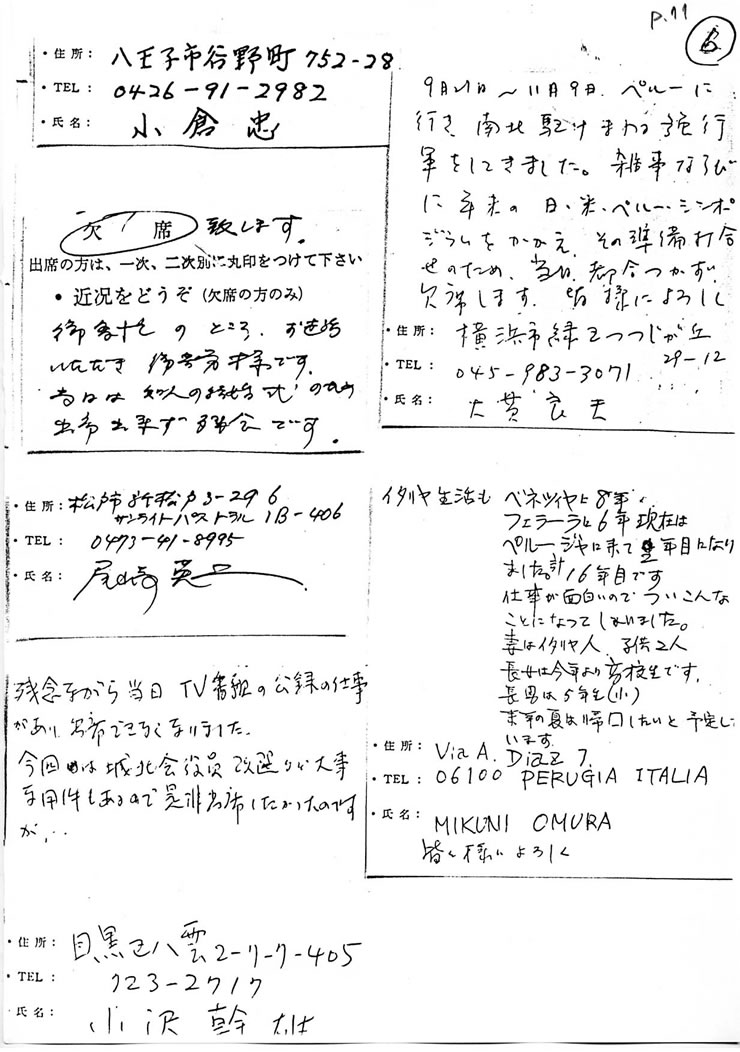 P.11
6
・住所： 八王子市谷野町 752-28
・TEL： 0426-91-2982
・氏名： 小倉 忠
欠 席 致します。
出席の方は、一次、二次別に丸印をつけて下さい
・近況をどうぞ (欠席の方のみ)
御多忙 の ところ、お世話
いただき
当日は 知人の結婚式 の
です。
・住所： 松戸市新松戸3-296
サンライトパストラル 1B-406
・TEL： 0473-41-8995
・氏名： 尾崎 英二
残念ながら 当日 TV番組の公録の仕事
があり 出席できなくなりました。
今回は 城北会役員改選など大事
な用件もあるので是非出席したかったのです
が、..
・住所： 目黒区八雲2-7-7-405
・TEL： 723-2717
氏名： 小沢 幹雄
9月21日～11月9日、ペルーに
行き、南北駆けまわる強行
軍をしてきました。雑事ならび
に年末の日・米・ペルー・シンポ
ジウムをかかえ、その準備打合
せのため、当日、都合つかず、
欠席します。皆様によろしく
・住所： 横浜市緑区つつじが丘
29-12
・TEL： 045-983-3071
・氏名： 大貫良夫
イタリヤ生活も ベネツィヤに8年、
フェラーラに6年 現在は
ペルージャに来て 2年目になり
ました。計16年目です
仕事が面白いので ついこんな
ことになってしまいました。
妻はイタリヤ人、子供2人
長女は今年より高校生です。
長男は5年生(小)
来年の夏は帰国したいと予定して
います。
・住所： Via A. Diaz 7.
・TEL： 06100 PERUGIA ITALIA
・氏名： MIKUNI OMURA
皆々様によろしく